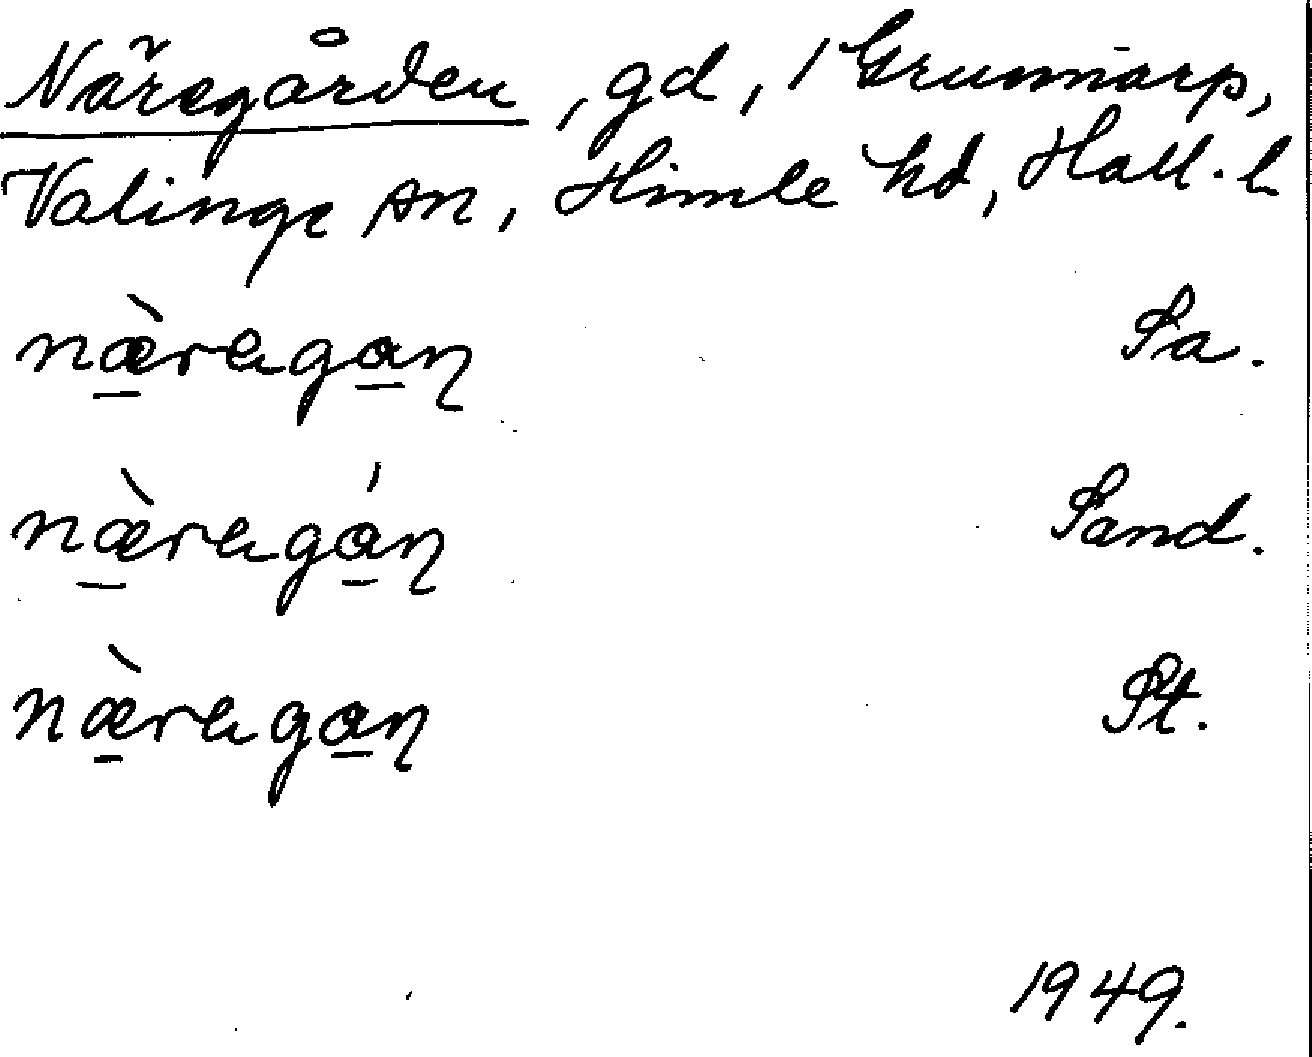 Näregården, gd, 1 Grunnarp,
Valinge sn, Himle hd, Hall. l
nær̀agan Sa.
nær̀agán Sand.
nær̀agan St.
1949.